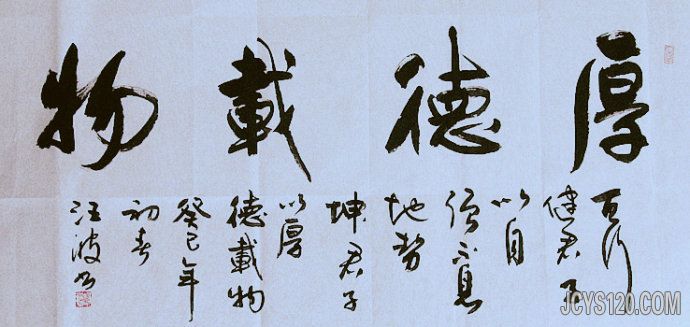 厚德載物
行
健君子
以自
强不息
地勢
坤君子
以厚
德載物
癸巳年
初春
汪波书
JCYS120.COM